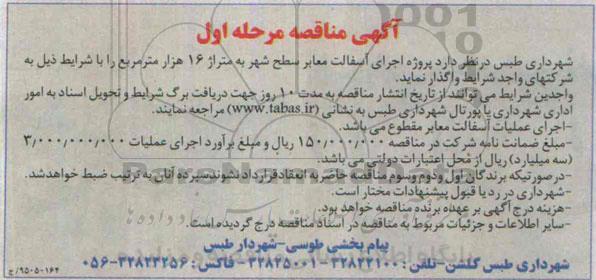 آگهی مناقصه مرحله اول
شهرداری طبس درنظر دارد پروژه اجرای آسفالت معابر سطح شهر به متراژ ۱۶ هزار مترمربع را با شرایط ذیل به
شرکتهای واجد شرایط واگذار نماید.
واجدین شرایط می توانند از تاریخ انتشار مناقصه به مدت ۱۰ روز جهت دریافت برگ شرایط و تحویل اسناد به امور
اداری شهرداری یا پورتال شهرداری طبس به نشانی (www.tabas.ir) مراجعه نمایند.
-اجرای عملیات آسفالت معابر مقطوع می باشد.
-مبلغ ضمانت نامه شرکت در مناقصه ۱۵۰/۰۰۰/۰۰۰ ریال و مبلغ برآورد اجرای عملیات ۳/۰۰۰/۰۰۰/۰۰۰
(سه میلیارد) ریال از محل اعتبارات دولتی می باشد.
-درصورتیکه برندگان اول و دوم وسوم مناقصه حاضر به انعقاد قرارداد نشوند سپرده آنان به ترتیب ضبط خواهدشد.
-شهرداری در رد یا قبول پیشنهادات مختار است.
-هزینه درج آگهی بر عهده برنده مناقصه خواهد بود.
-سایر اطلاعات و جزئیات مربوط به مناقصه در اسناد مناقصه درج گردیده است.
پیام بخشی طوسی-شهردار طبس
شهرداری طبس گلشن-تلفن: ۳۲۸۲۲۱۰۰-۳۲۸۲۵۰۰۱ - فاکس: ۳۲۸۲۳۲۵۶-۰۵۶
۹۵۰۵۰۱۶۴/ج